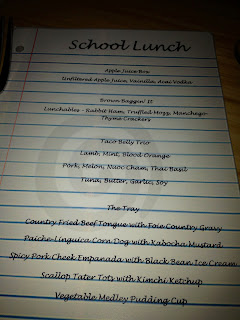 School Lunch
Apple Juice Box
Unfiltered Apple Juice, Vanilla, Acai Vodka
Brown Baggin' It
Lunchables - Rabbit Ham, Truffled Mozz, Manchego-
Thyme Crackers
Taco Belly Trio
Lamb, Mint, Blood Orange
Pork, Melon, Nuoc Cham, Thai Basil
Tuna, Butter, Garlic, Soy
The Tray
Country Fried Beef Tongue with Foie Country Gravy
Paiche-Linguica Corn Dog with Kabocha Mustard
Spicy Pork Cheek Empanada with Black Bean Ice Cream
Scallop Tater Tots with Kimchi Ketchup
Vegetable Medley Pudding Cup